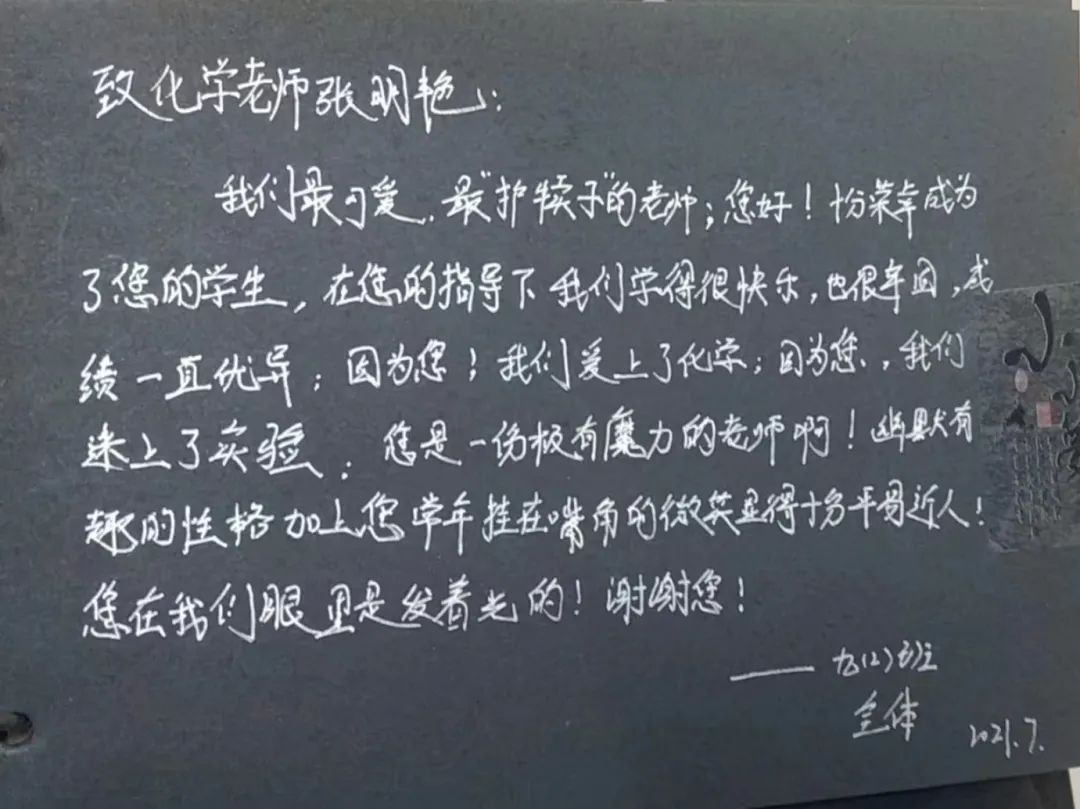 致化学老师张明艳：
我们最可爱、最“护犊子”的老师；您好！十份荣幸成为
了您的学生，在您的指导下我们学得很快乐，也很牢固，成
绩一直优异；因为您！我们爱上了化学；因为您、我们
迷上了实验； 您是一份极有魔力的老师啊！幽默有
趣的性格加上您常年挂在嘴角的微笑显得十分平易近人！
您在我们眼里是发着光的！谢谢您！
—— 九(2)班
全体
2021.7.
小